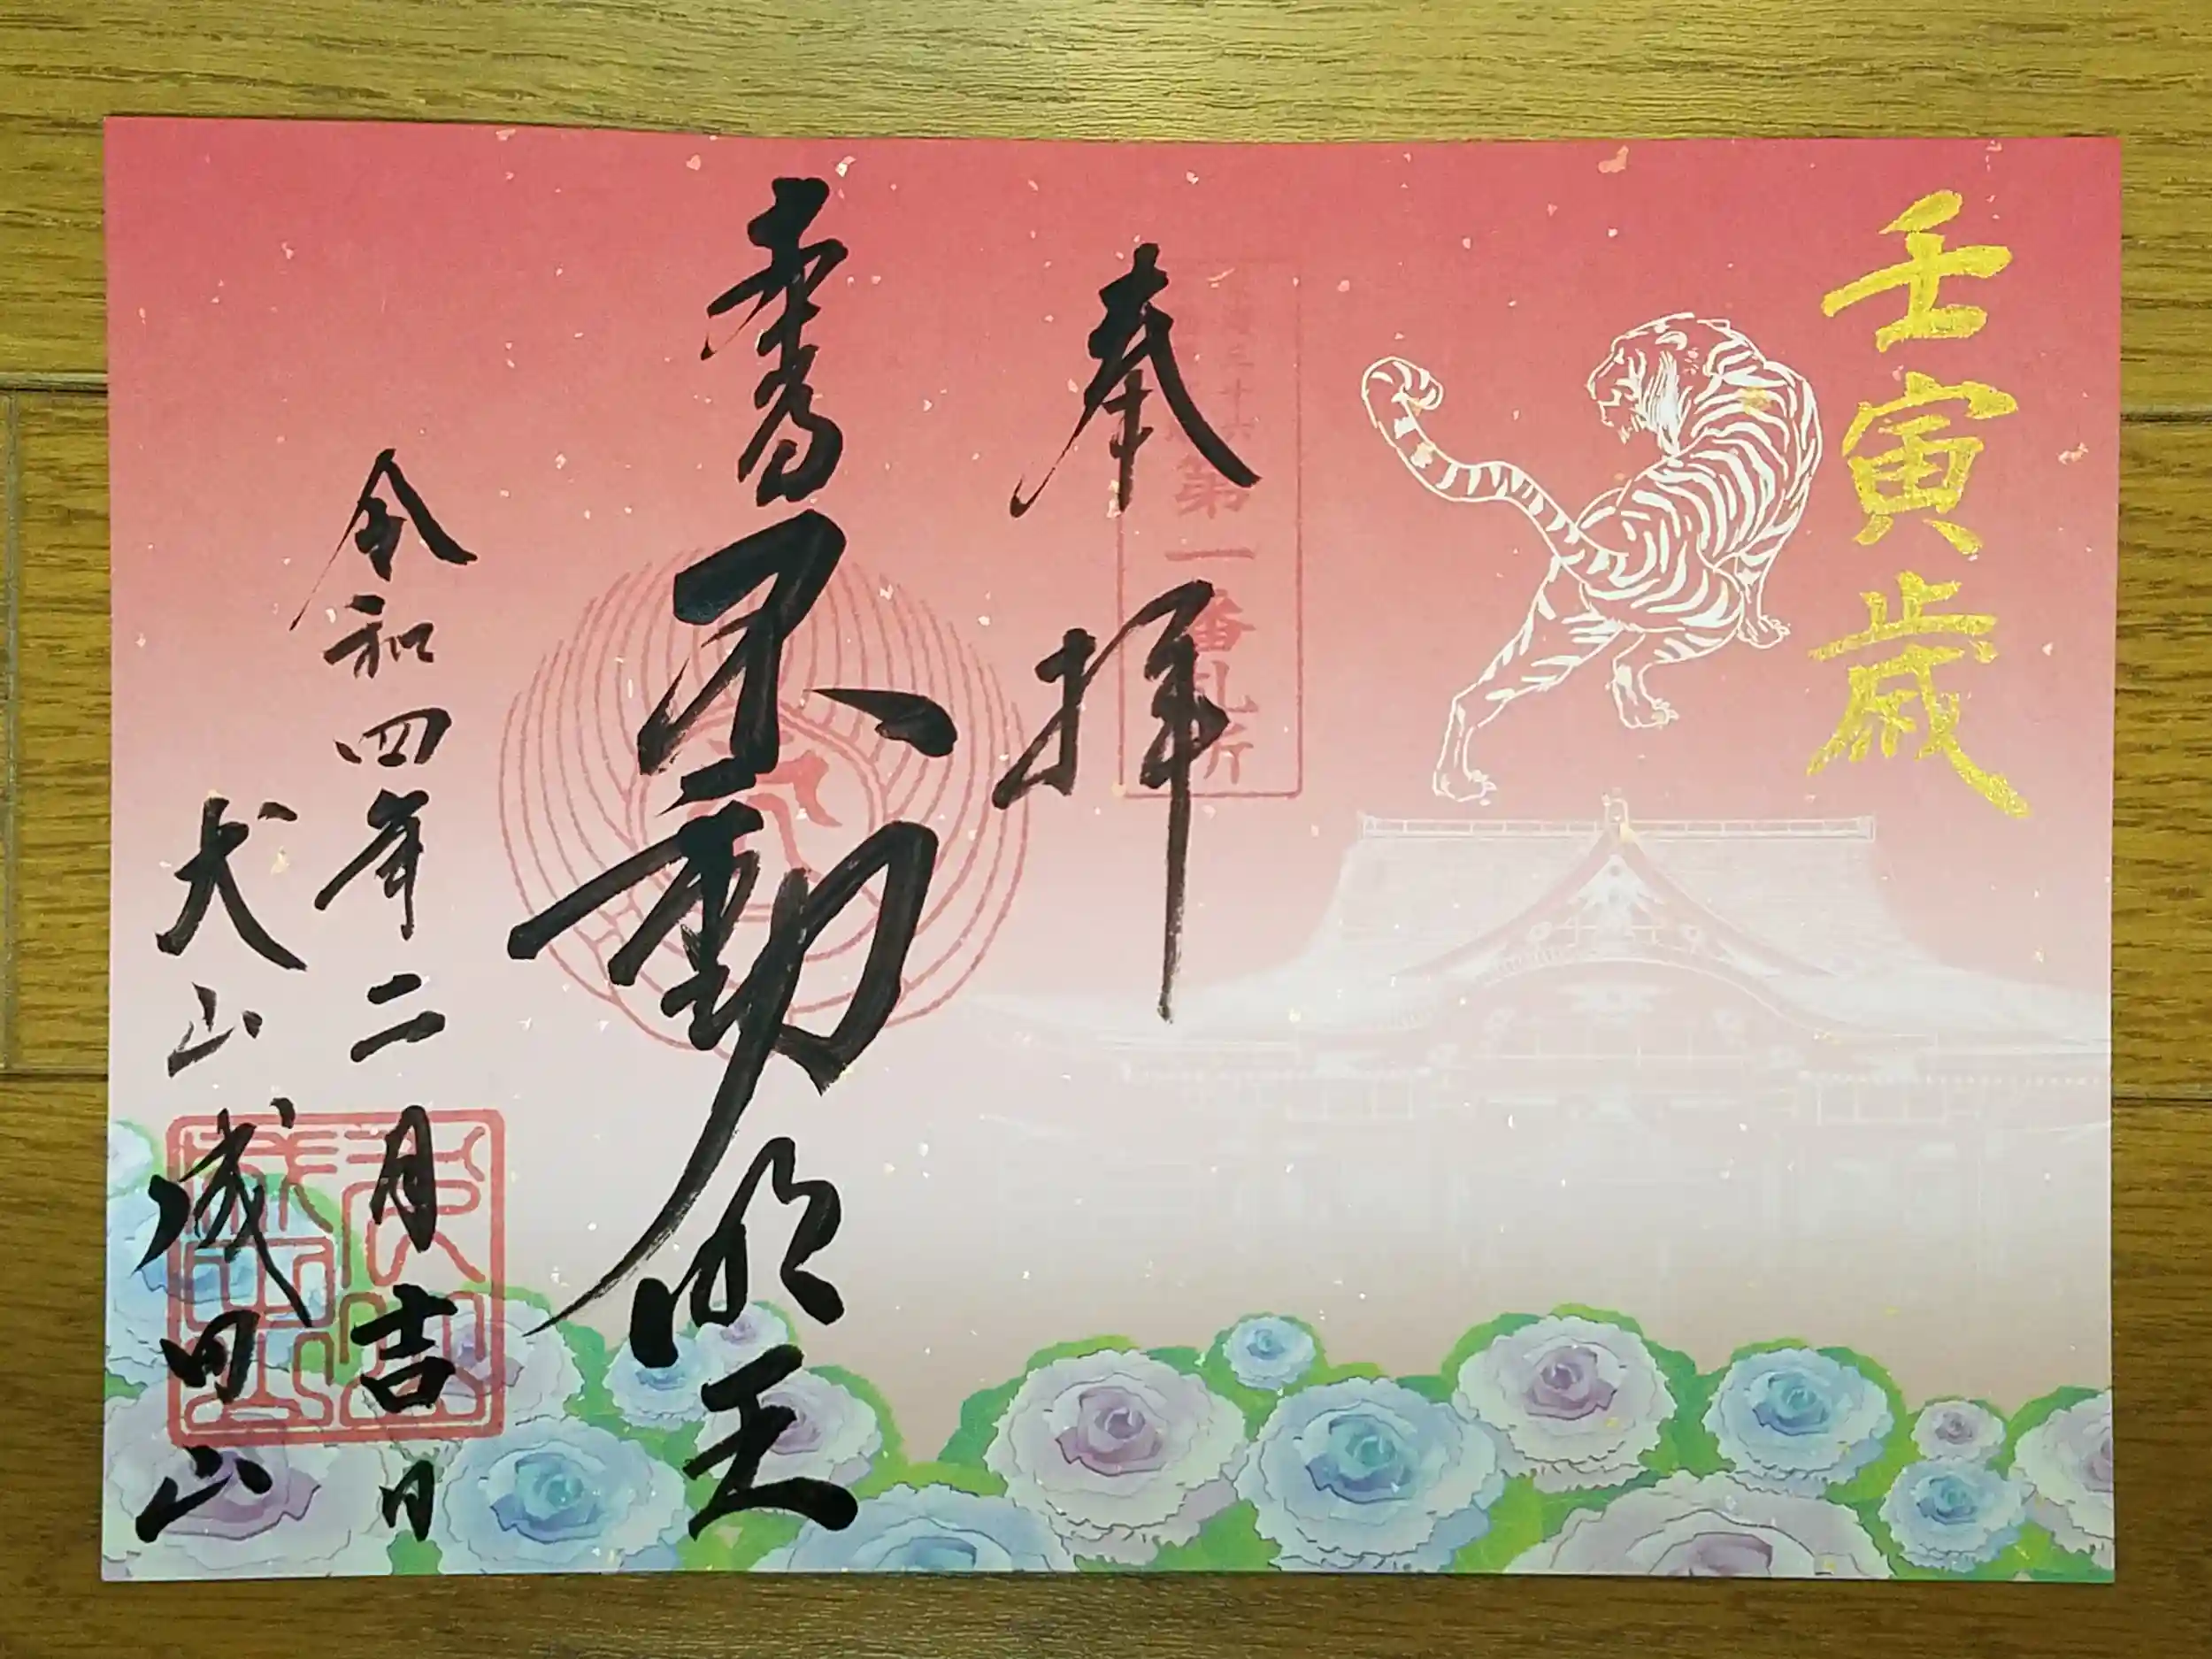 壬寅歳
奉拝
東海三十六
第一番札所
不動明王
令和四年二月吉日
犬山成田山